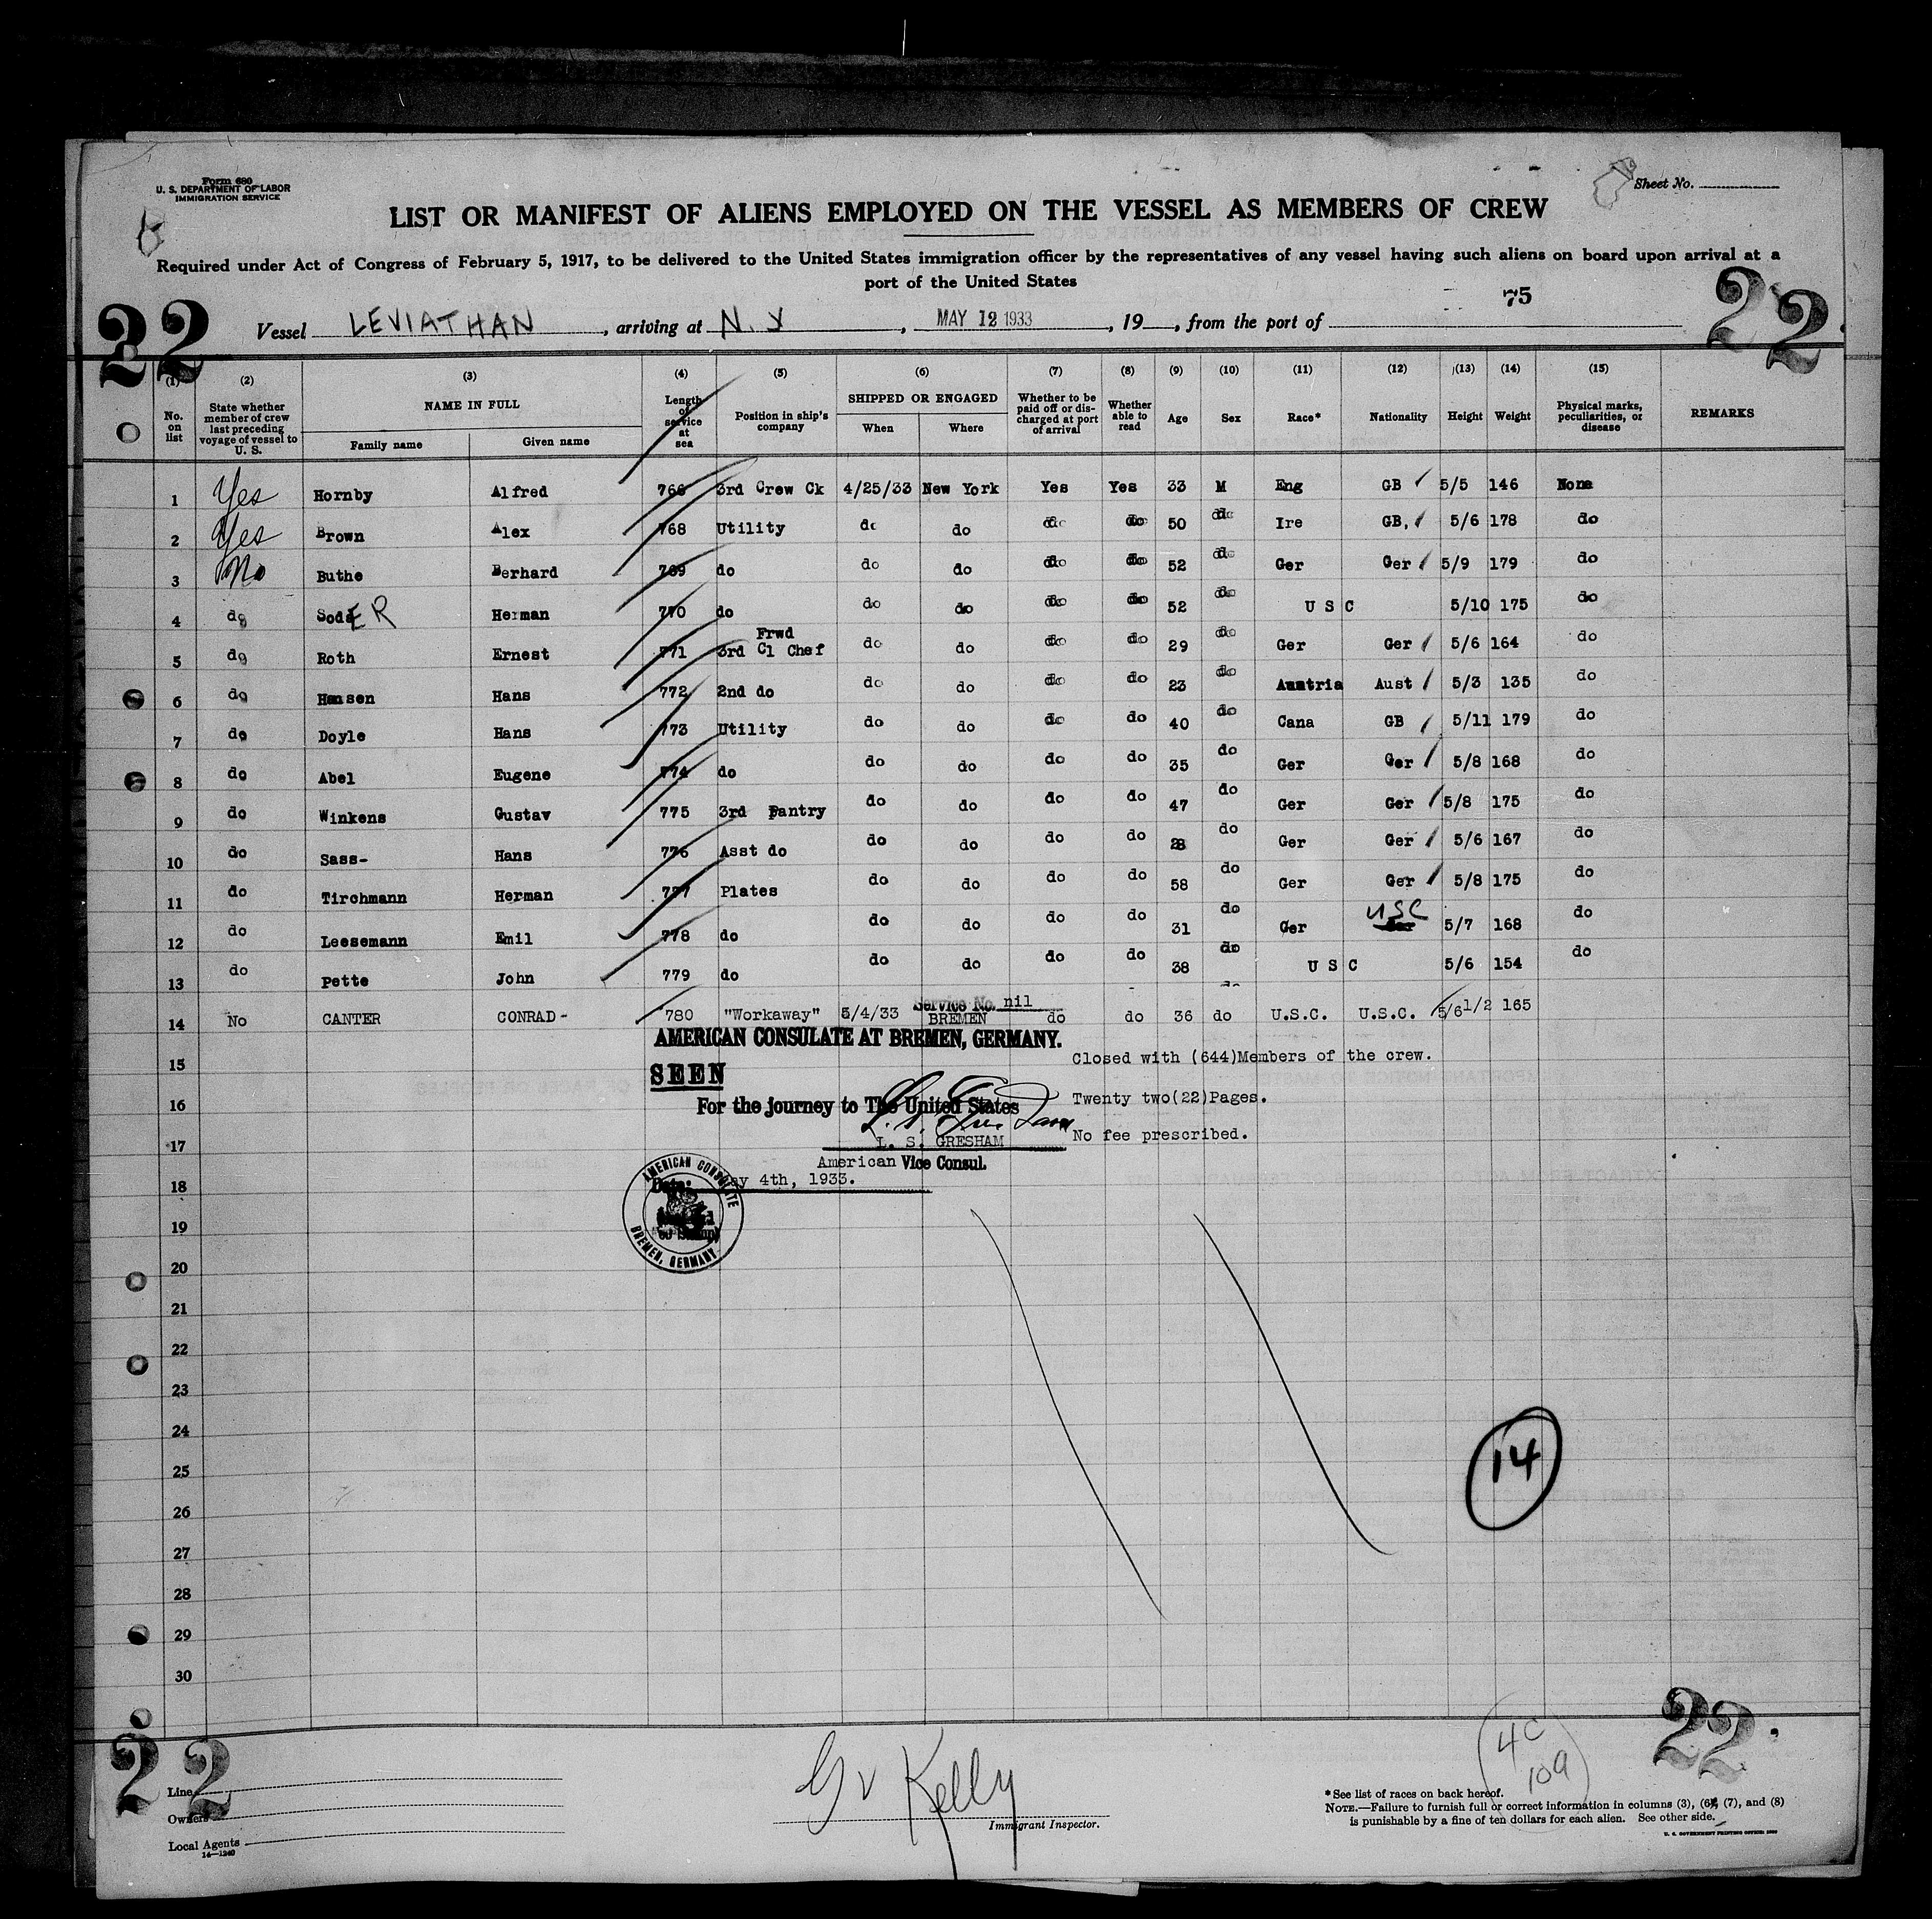 Form 680
U. S. DEPARTMENT OF LABOR
IMMIGRATION SERVICE
Sheet No.
LIST OR MANIFEST OF ALIENS EMPLOYED ON THE VESSEL AS MEMBERS OF CREW
Required under Act of Congress of February 5, 1917, to be delivered to the United States immigration officer by the representatives of any vessel having such aliens on board upon arrival at a
port of the United States
75
22 22
Vessel LEVIATHAN, arriving at N. Y, MAY 12 1933, 19, from the port of
(1) (2) (3) (4) (5) (6) (7) (8) (9) (10) (11) (12) (13) (14) (15)
No. on list State whether member of crew last preceding voyage of vessel to U. S. NAME IN FULL Family name Given name Length of service at sea Position in ship's company SHIPPED OR ENGAGED When Where Whether to be paid off or discharged at port of arrival Whether able to read Age Sex Race* Nationality Height Weight Physical marks, peculiarities, or disease REMARKS
1 Yes Hornby Alfred 766 3rd Crew Ck 4/25/33 New York Yes Yes 33 M Eng GB 5/5 146 None
2 Yes Brown Alex 768 Utility do do do do 50 do Ire GB, 5/6 178 do
3 No Buthe Berhard 769 do do do do do 52 do Ger Ger 5/9 179 do
4 do SodER Herman 770 do do do do do 52 do U S C 5/10 175 do
5 do Roth Ernest 771 Frwd 3rd Cl Chef do do do do 29 do Ger Ger 5/6 164 do
6 do Hansen Hans 772 2nd do do do do do 23 do Austria Aust 5/3 135 do
7 do Doyle Hans 773 Utility do do do do 40 do Cana GB 5/11 179 do
8 do Abel Eugene 774 do do do do do 35 do Ger Ger 5/8 168 do
9 do Winkens Gustav 775 3rd Pantry do do do do 47 do Ger Ger 5/8 175 do
10 do Sass- Hans 776 Asst do do do do do 28 do Ger Ger 5/6 167 do
11 do Tirchmann Herman 777 Plates do do do do 58 do Ger Ger 5/8 175 do
12 do Leesemann Emil 778 do do do do do 31 do Ger USC 5/7 168 do
13 do Pette John 779 do do do do do 38 do U S C 5/6 154 do
14 No CANTER CONRAD- 780 "Workaway" 5/4/33 BREMEN do do 36 do U.S.C. U.S.C. 5/6 1/2 165
Service No. nil
AMERICAN CONSULATE AT BREMEN, GERMANY.
15
Closed with (644)Members of the crew.
SEEN
16
For the journey to The United States
Twenty two(22)Pages.
17
L. S. GRESHAM
No fee prescribed.
American Vice Consul.
18
Date: May 4th, 1933.
AMERICAN CONSULATE
BREMEN, GERMANY
19
20
21
22
23
24
25
14
26
27
28
29
30
22 22
4C
109
G V Kelly
Immigrant Inspector.
Line
Owners
Local Agents
14—1240
*See list of races on back hereof.
NOTE.—Failure to furnish full or correct information in columns (3), (6), (7), and (8)
is punishable by a fine of ten dollars for each alien. See other side.